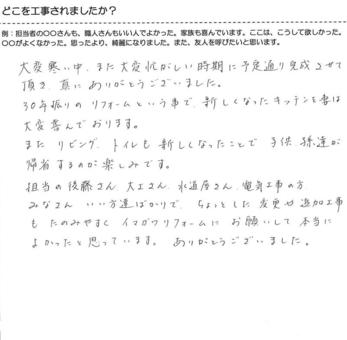 どこを工事されましたか？
例：担当者の〇〇さんも、職人さんもいい人でよかった。家族も喜んでいます。ここは、こうして欲しかった。
〇〇がよくなかった。思ったより、綺麗になりました。また、友人を呼びたいと思います。
大変寒い中、また大変忙がしい時期に予定通り完成させて
頂き、真にありがとうございました。
30年振りのリフォームという事で、新しくなったキッチンを妻は
大変喜んでおります。
またリビング、トイレも新しくなったことで子供、孫達が
帰省するのが楽しみです。
担当の後藤さん、大工さん、水道屋さん、電気工事の方
みなさんいい方達ばかりで、ちょっとした変更や追加工事
もたのみやすくイマガワリフォームにお願いして本当に
よかったと思っています。ありがとうございました。